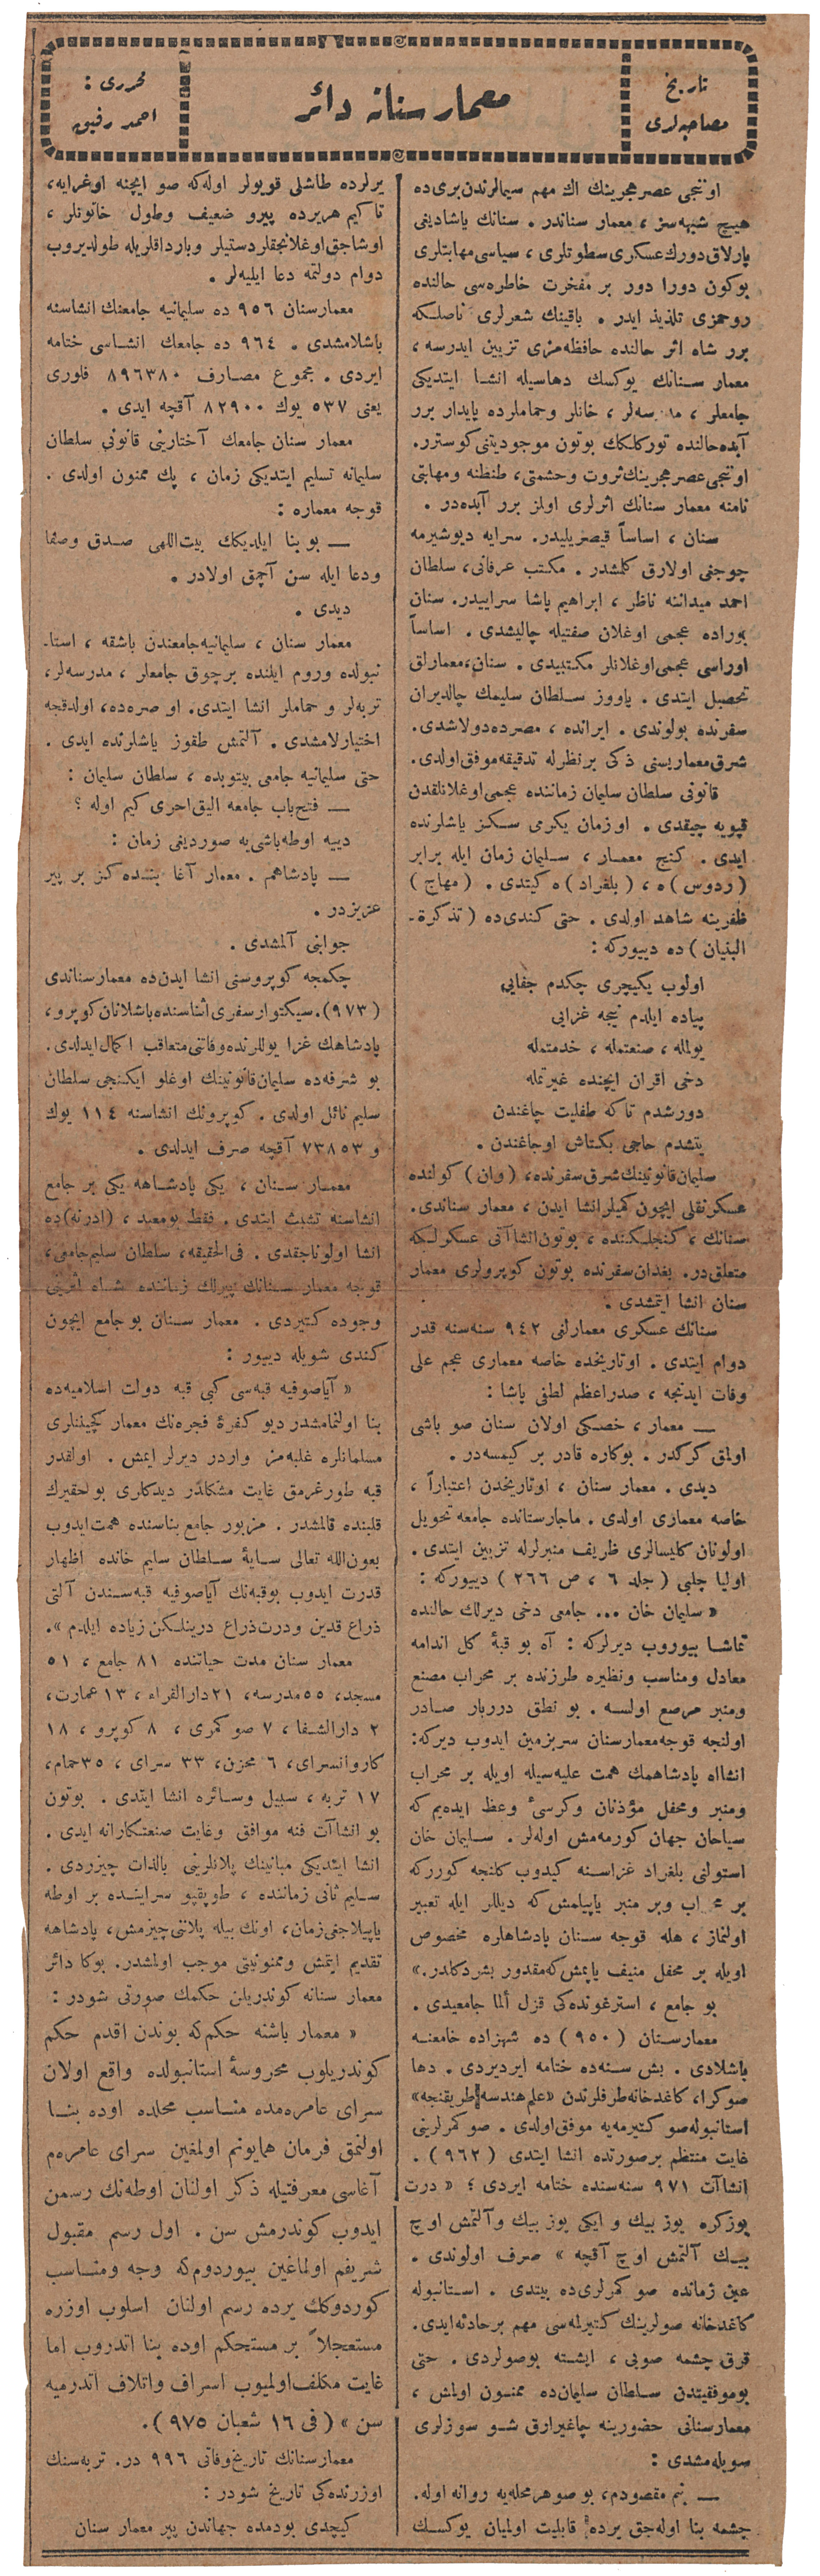 تاریخ
مصاحبه‌لری
معمار سنانه دائر
محرری :
احمد رفیق
اوننجی عصر هجرینك اك مهم سیمالرندن بری ده
هیچ شبهه‌سز ، معمار سناندر . سنانك یاشادیغی
پارلاق دورك عسکری سطوتلری ، سیاسی مهابتلری
بوکون دورا دور بر مفخرت خاطره‌سی حالنده
روحمزی تلذیذ ایدر . باقینك شعرلری ناصلکه
برر شاه اثر حالنده حافظه‌مزی تزیین ایدرسه ،
معمار سنانك یوکسك دهاسیله انشا ایتدیکی
جامعلر ، مدرسه‌لر ، خانلر و حماملرده پایدار برر
آبده حالنده تورکلکك بوتون موجودیتنی کوسترر.
اوننجی عصر هجرینك ثروت وحشمتی، طنطنه ومهابتی
نامنه معمار سنانك اثرلری اولمز برر آبده‌در .
سنان ، اساساً قیصریلیدر. سرایه دیوشیرمه
چوجغی اولارق کلمشدر . مکتب عرفانی، سلطان
احمد میداننه ناظر ، ابراهیم پاشا سراییدر. سنان
بوراده عجمی اوغلان صفتیله چالیشدی . اساساً
اوراسی عجمی اوغلانلر مکتبیدی . سنان، معمارلق
تحصیل ایتدی . یاووز سلطان سلیمك چالدیران
سفرنده بولوندی . ایرانده ، مصرده دولاشدی.
شرق معماریسنی ذکی بر نظرله تدقیقه موفق اولدی.
قانونی سلطان سلیمان زماننده عجمی اوغلانلقدن
قپویه چیقدی . او زمان یکرمی سکز یاشلرنده
ایدی . کنج معمار ، سلیمان زمان ایله برابر
( ردوس ) ه ، ( بلغراد ) ه کیتدی . ( مهاج )
ظفرینه شاهد اولدی . حتی کندی ده ( تذکرة ـ
البنیان ) ده دییورکه :
اولوب یکیچری چکدم جفایی
پیاده ایلدم نیجه غزایی
یولمله ، صنعتمله ، خدمتمله
دخی اقران ایچنده غیرتمله
دورشدم تا که طفلیت چاغندن
یتشدم حاجی بکتاش اوجاغندن .
سلیمان قانونینك شرق سفرنده، (وان) کولنده
عسکر نقلی ایچون کمیلر انشا ایدن ، معمار سناندی.
سنانك ، کنجلکنده ، بوتون انشاآتی عسکرلکه
متعلق‌در. بغدان سفرنده بوتون کوپرولری معمار
سنان انشا ایتمشدی .
سنانك عسکری معمارلغی ٩٤٢ سنه‌سنه قدر
دوام ایتدی . او تاریخده خاصه معماری عجم علی
وفات ایدنجه ، صدراعظم لطفی پاشا :
— معمار ، خصکی اولان سنان صو باشی
اولمق کرکدر . بو کاره قادر بر کیمسه‌در .
دیدی . معمار سنان ، او تاریخدن اعتباراً ،
خاصه معماری اولدی . ماجارستانده جامعه تحویل
اولونان کلیسالری ظریف منبرلرله تزیین ایتدی .
اولیا چلبی ( جلد ٦ ، ص ٢٦٦ ) دییورکه :
« سلیمان خان ... جامعی دخی دیرلك حالنده
تماشا بیوروب دیرلرکه : آه بو قبهٔ کل اندامه
معادل ومناسب ونظیره طرزنده بر محراب مصنع
ومنبر مرصع اولسه . بو نطق درربار صادر
اولنجه قوجه معمار سنان سربزمین ایدوب دیرکه:
انشاالله پادشاهمك همت علیه‌سیله اویله بر محراب
ومنبر ومحفل مؤذنان وکرسیٔ وعظ ایده‌یم که
سیاحان جهان کورمه‌مش اوله‌لر . سلیمان خان
استولنی بلغراد غزاسنه کیدوب کلنجه کوررکه
بر محراب وبر منبر یاپیلمش که دیللر ایله تعبیر
اولنماز ، هله قوجه سنان پادشاهلره مخصوص
اویله بر محفل منیف یاپمش که مقدور بشر دکلدر.»
بو جامع ، استرغونده‌کی قزل ألما جامعیدی .
معمار سنان ( ٩٥٠ ) ده شهزاده جامعنه
باشلادی . بش سنه‌ده ختامه ایردیردی . دها
صوکرا، کاغدخانه طرفلرندن «علم هندسه طریقنجه»
استانبوله صو کتیرمه‌یه موفق اولدی . صو کمرلرینی
غایت منتظم بر صورتده انشا ایتدی ( ٩٦٢ ) .
انشاآت ٩٧١ سنه‌سنده ختامه ایردی ؛ « درت
یوز کره یوز بیك و ایکی یوز بیك و آلتمش اوچ
بیك آلتمش اوچ آقچه » صرف اولوندی .
عین زمانده صو کمرلری ده بیتدی . استانبوله
کاغدخانه صولرینك کتیرلمه‌سی مهم بر حادثه ایدی.
قرق چشمه صویی ، ایشته بو صولردی . حتی
بو موفقیتدن سلطان سلیمان ده ممنون اولمش ،
معمار سنانی حضورینه چاغیرارق شو سوزلری
سویله‌مشدی :
— بنم مقصودم، بو صو هر محله‌یه روانه اوله.
چشمه بنا اوله‌جق یرده قابلیت اولمیان یوکسك
یرلرده طاشلی قویولر اوله که صو ایچنه اوغرایه،
تا کیم هر یرده پیرو ضعیف وطول خاتونلر ،
اوشاجق اوغلانجقلر دستیلر وبارداقلریله طولدیروب
دوام دولتمه دعا ایلیه‌لر .
معمار سنان ٩٥٦ ده سلیمانیه جامعنك انشاسنه
باشلامشدی . ٩٦٤ ده جامعك انشاسی ختامه
ایردی . مجموع مصارف ٨٩٦٣٨٠ فلوری
یعنی ٥٣٧ یوك ٨٢٩٠٠ آقچه ایدی .
معمار سنان جامعك آختارینی قانونی سلطان
سلیمانه تسلیم ایتدیکی زمان ، پك ممنون اولدی .
قوجه معماره :
— بو بنا ایلدیکك بیت‌اللهی صدق وصفا
ودعا ایله سن آچمق اولادر .
دیدی .
معمار سنان ، سلیمانیه جامعندن باشقه ، استا ـ
نبولده وروم ایلنده بر چوق جامعلر ، مدرسه‌لر ،
تربه‌لر و حماملر انشا ایتدی. او صره‌ده، اولدقجه
اختیارلامشدی . آلتمش طقوز یاشلرنده ایدی .
حتی سلیمانیه جامعی بیتوبده ، سلطان سلیمان :
— فتح باب جامعه الیق احری کیم اوله ؟
دییه اوطه‌باشی‌یه صوردیغی زمان :
— پادشاهم . معمار آغا بنده‌کز بر پیر
عزیزدر .
جوابنی آلمشدی .
چکمجه کوپروسنی انشا ایدن ده معمار سناندی
( ٩٧٣ ). سیکتوار سفری اثناسنده باشلانان کوپرو،
پادشاهك غزا یوللرنده وفاتنی متعاقب اکمال ایدلدی.
بو شرفه‌ده سلیمان قانونینك اوغلو ایکنجی سلطان
سلیم نائل اولدی . کوپرونك انشاسنه ١١٤ یوك
و ٧٣٨٥٣ آقچه صرف ایدلدی .
معمار سنان ، یکی پادشاهه یکی بر جامع
انشاسنه تشبث ایتدی . فقط بو معبد ، (ادرنه) ده
انشا اولوناجقدی . فی‌الحقیقه، سلطان سلیم جامعی،
قوجه معمار سنانك پیرلك زماننده شاه اثرینی
وجوده کتیردی . معمار سنان بو جامع ایچون
کندی شویله دییور :
« آیاصوفیه قبه‌سی کبی قبه دولت اسلامیه‌ده
بنا اولنمامشدر دیو کفرهٔ فجره‌نك معمار کچیننلری
مسلمانلره غلبه‌مز واردر دیرلر ایمش . اولقدر
قبه طورغرمق غایت مشکلدر دیدکلری بو حقیرك
قلبنده قالمشدر . مزبور جامع بناسنده همت ایدوب
بعون‌الله تعالی سایهٔ سلطان سلیم خانده اظهار
قدرت ایدوب بو قبه‌نك آیاصوفیه قبه‌سندن آلتی
ذراع قدین و درت ذراع درینلکن زیاده ایلدم ».
معمار سنان مدت حیاتنده ٨١ جامع ، ٥١
مسجد، ٥٥ مدرسه، ٢١ دارالقراء ، ١٣ عمارت،
٢ دارالشفا ، ٧ صو کمری ، ٨ کوپرو ، ١٨
کاروانسرای، ٦ مخزن، ٣٣ سرای ، ٣٥ حمام،
١٧ تربه ، سبیل وسائره انشا ایتدی . بوتون
بو انشاآت فنه موافق وغایت صنعتکارانه ایدی .
انشا ایتدیکی مبانینك پلانلرینی بالذات چیزردی .
سلیم ثانی زماننده ، طوپقپو سراینده بر اوطه
یاپیلاجغی زمان، اونك بیله پلاننی چیزمش، پادشاهه
تقدیم ایتمش وممنونیتنی موجب اولمشدر. بوکا دائر
معمار سنانه کوندریلن حکمك صورتی شودر :
« معمار باشنه حکم که بوندن اقدم حکم
کوندریلوب محروسهٔ استانبولده واقع اولان
سرای عامره‌مده مناسب محلده اوده بنا
اولنمق فرمان همایونم اولمغین سرای عامره‌م
آغاسی معرفتیله ذکر اولنان اوطه‌نك رسمن
ایدوب کوندرمش سن . اول رسم مقبول
شریفم اولماغین بیوردوم که وجه ومناسب
کوردوکك یرده رسم اولنان اسلوب اوزره
مستعجلاً بر مستحکم اوده بنا اتدروب اما
غایت مکلف اولمیوب اسراف واتلاف اتدرمیه
سن » ( فی ١٦ شعبان ٩٧٥ ).
معمار سنانك تاریخ وفاتی ٩٩٦ در. تربه‌سنك
اوزرنده‌کی تاریخ شودر :
کیچدی بو دمده جهاندن پیر معمار سنان